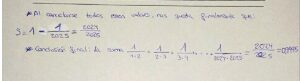 * Al cancelarse todos esos valores, nos queda finalmente que:
S = 1 - 1/2025 = 2024/2025
* Conclusión final: la suma 1/1·2 + 1/2·3 + 1/3·4 + ... + 1/2024·2025 = 2024/2025 =